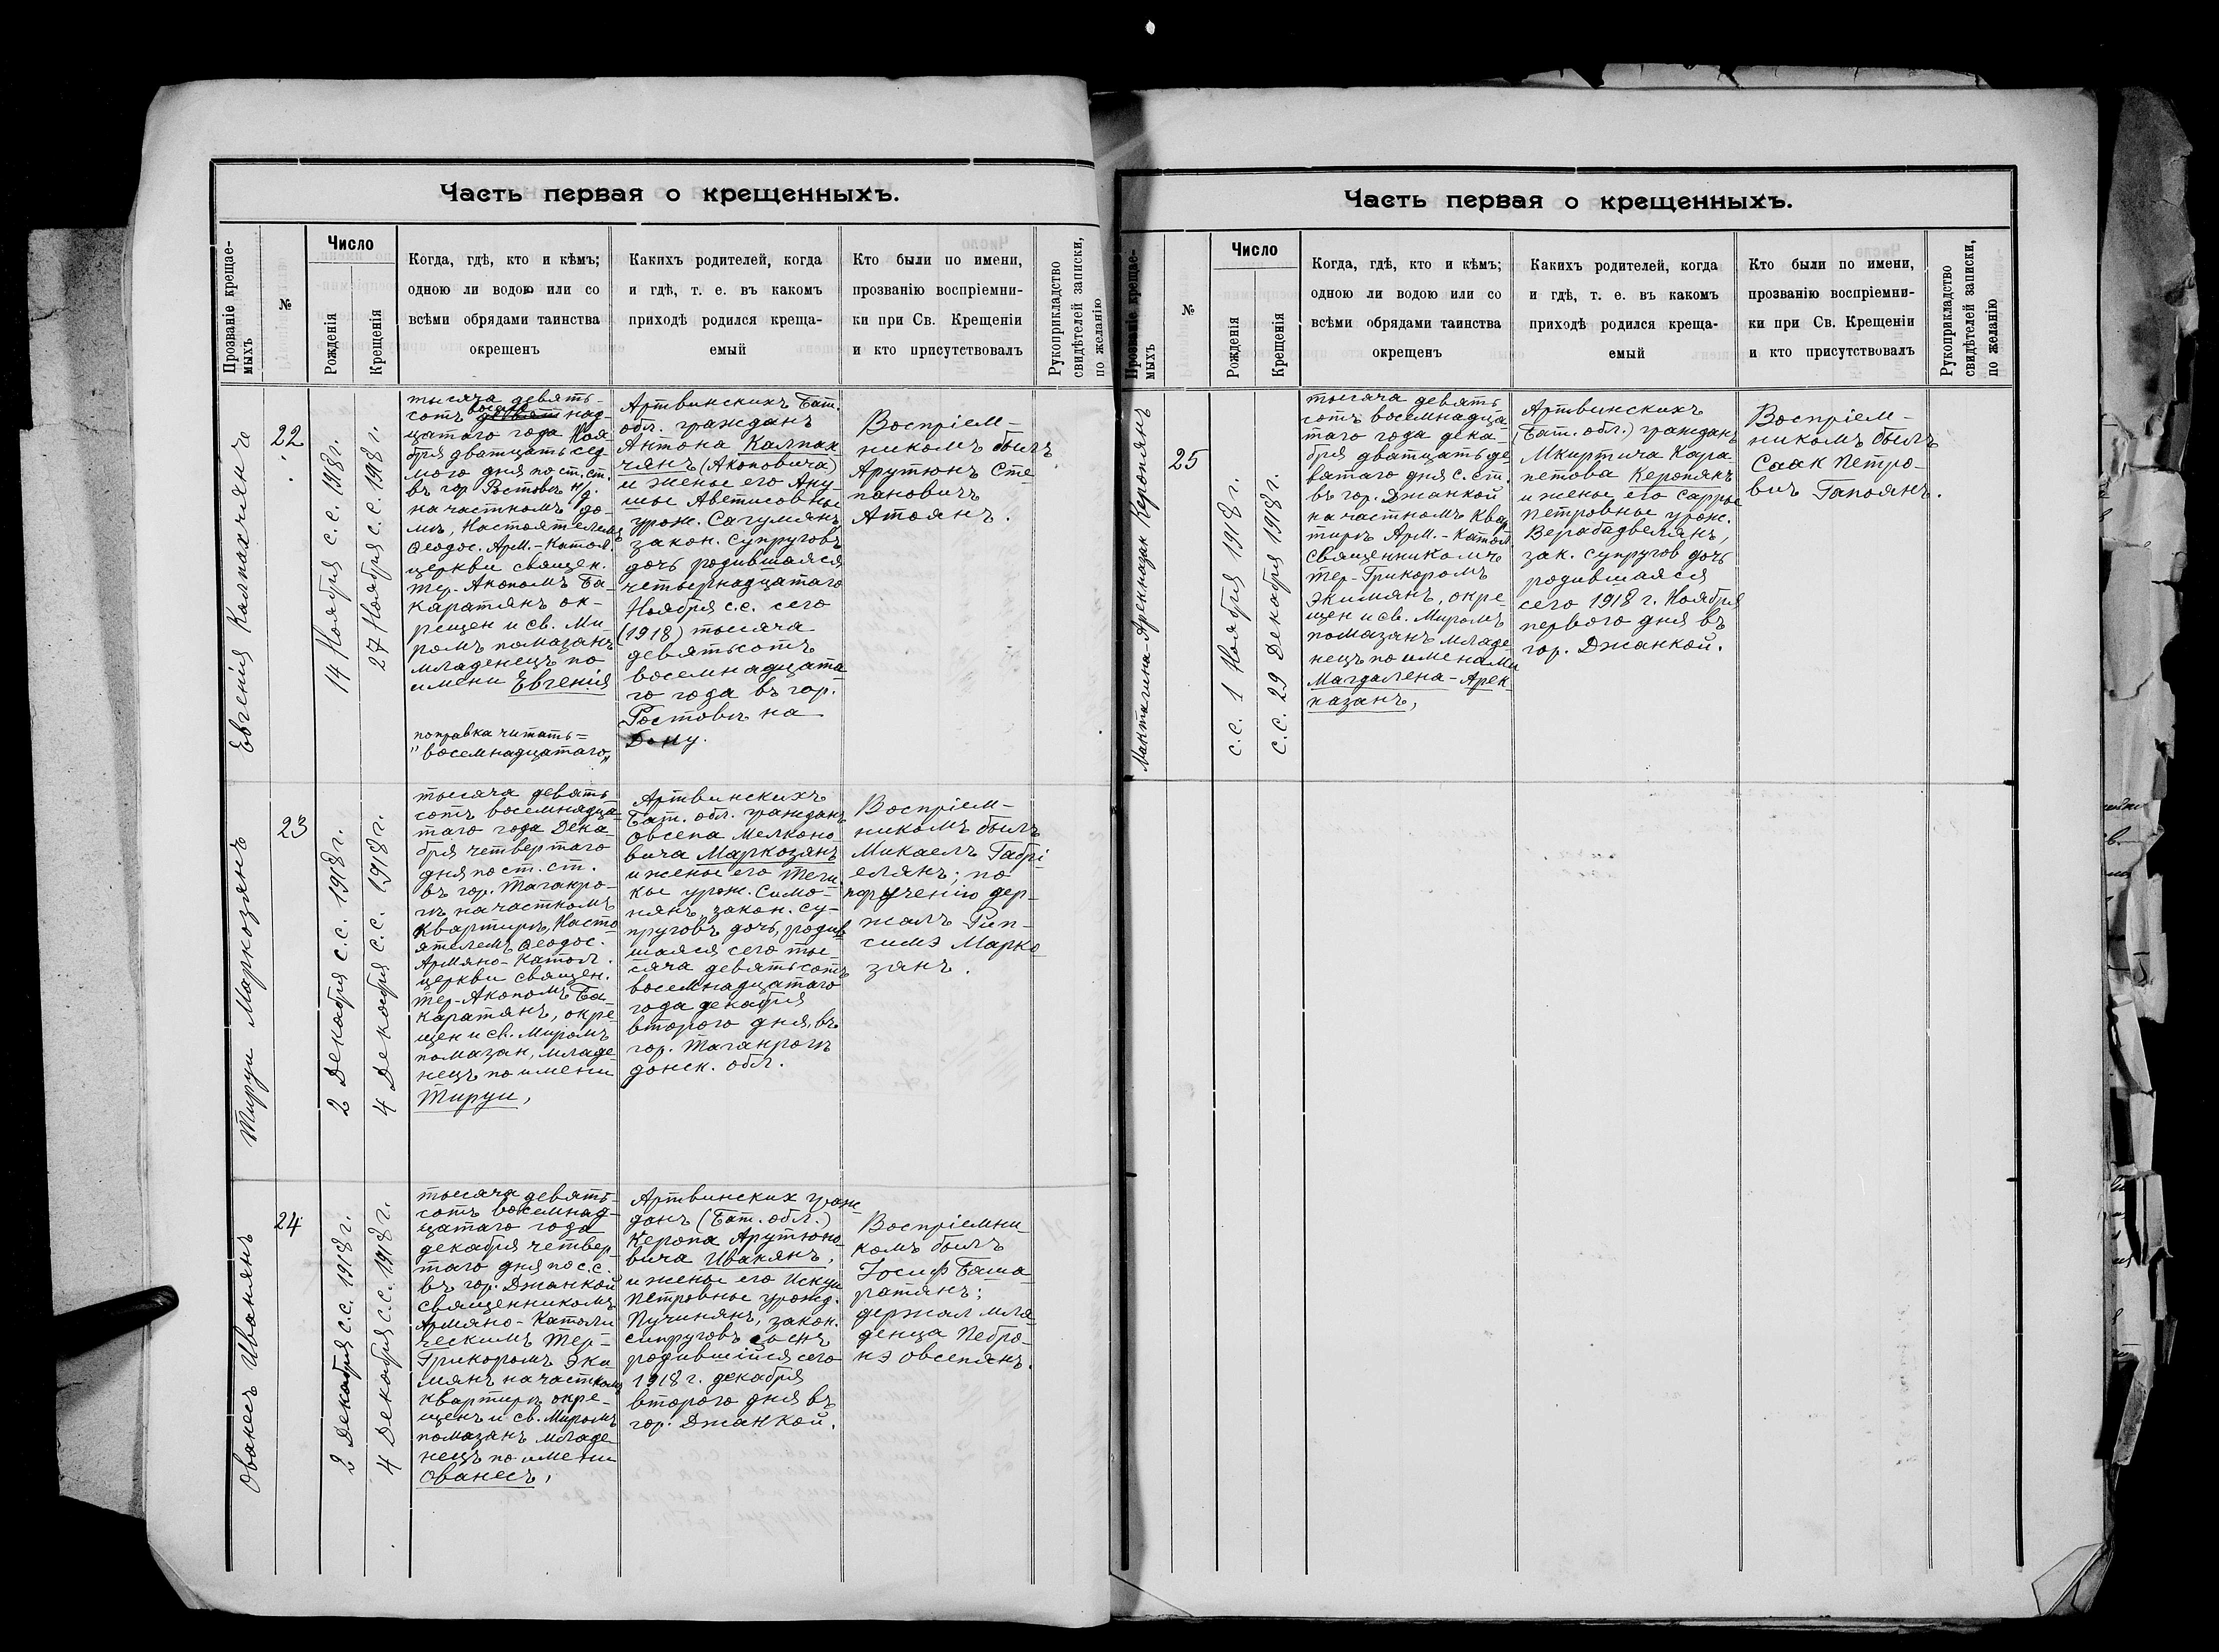 Часть первая о крещенныхъ.
Прозваніе крещае-
мыхъ
№
Число
Рожденія
Крещенія
Когда, гдѣ, кто и кѣмъ;
одною ли водою или со
всѣми обрядами таинства
окрещенъ
Какихъ родителей, когда
и гдѣ, т. е. въ какомъ
приходѣ родился креща-
емый
Кто были по имени,
прозванію воспріемни-
ки при Св. Крещеніи
и кто присутствовалъ
Рукоприкладство
свидѣтелей записки,
по желанію
Евгенія Калпакчіянъ
22
14 Ноября с.с. 1918 г.
27 Ноября с.с. 1918 г.
тысяча девять-
сотъ восемнад-
цатаго года Ноя-
бря дватцать сед
мого дня по ст. ст.
въ гор Ростовѣ н/д.
на частномъ до-
мѣ, Настоятелемъ
Ѳеодос. Арм.-Катол.
церкви священ.
тер-Акопомъ Ба-
каратянъ ок-
рещен и св. Ми-
ромъ помазанъ
младенецъ по
имени Евгенія
поправка читать=
"восемнадцатаго"
Артвинскихъ Бат.
обл. гражданъ
Антона Калпак
чянъ (Акоповича)
и жены его Ану
шы Аветисовны
урож. Сагумянъ
закон. супруговъ
дочь родившаяся
четвернадцатаго
Ноября с.с. сего
(1918) тысяча
девятьсотъ
восемнадцата
го года въ гор.
Ростовѣ на
Дону.
Воспріем-
никомъ былъ
Арутюнъ Сте
пановичъ
Атоянъ.
Тируи Маркозянъ
23
2 Декабря с.с. 1918 г.
4 Декабря с.с. 1918 г.
тысяча девять
сотъ восемнадца-
таго года Дека-
бря четвертаго
дня по ст. ст.
въ гор. Таганро-
гѣ на частномъ
квартирѣ, Насто
ятелемъ Ѳеодос.
Армяно-Катол.
церкви священ.
тер-Акопомъ Ба-
каратянъ, окре
щен и св. Миромъ
помазан, младе-
нецъ по имени
Тируи,
Артвинскихъ
Бат. обл. гражданъ
Овсепа Мелконо
вича Маркозянъ
и жены его Теги
кы урож. Симо-
нянъ, закон. су-
пруговъ дочь, родив
шаяся сего ты-
сяча девятьсотъ
восемнадцатаго
года декабря
второго дня, въ
гор. Таганрогѣ
донск. обл.
Воспріем-
никомъ былъ
Микаелъ Габрі
елянъ; по
порученію дер-
жалъ Рип-
симэ Марко
зянъ.
Ованесъ Иванянъ
24
2 Декабря с.с. 1918 г.
4 Декабря с.с. 1918 г.
тысяча девять-
сотъ восемнад-
цатаго года
декабря четвер-
таго дня по с.с.
въ гор. Джанкой
священникомъ
Армяно-Католи
ческимъ Тер-
Грикоромъ Эки
мянъ на частномъ
квартирѣ окре-
щенъ и св. Миромъ
помазанъ младе
нецъ по имени
Ованесъ,
Артвинских граж
данъ (Бат. обл.)
Керопа Арутюно
вича Иванянъ,
и жены его Искуи
Петровны урожд.
Пучинянъ, закон.
супруговъ сынъ
родившійся сего
1918 г. декабря
второго дня въ
гор. Джанкой.
Воспріемни-
комъ былъ
Іосиф Баша
ратянъ;
держал мла
денца Пебро-
нэ Овсепянъ.
Часть первая о крещенныхъ.
Прозваніе крещае-
мыхъ
№
Число
Рожденія
Крещенія
Когда, гдѣ, кто и кѣмъ;
одною ли водою или со
всѣми обрядами таинства
окрещенъ
Какихъ родителей, когда
и гдѣ, т. е. въ какомъ
приходѣ родился креща-
емый
Кто были по имени,
прозванію воспріемни-
ки при Св. Крещеніи
и кто присутствовалъ
Рукоприкладство
свидѣтелей записки,
по желанію
Керопянъ
25
с.с. 1 Ноября 1918 г.
с.с. 29 Декабря 1918 г.
тысяча девять
сотъ восемнадца-
таго года дека-
бря дватцать де
вятаго дня с. ст.
въ гор. Джанкой
на частномъ квар
тирѣ Арм.-Катол
священникомъ
тер-Грикоромъ
Экимянъ, окре-
щен и св. Миромъ
помазанъ младе
нецъ по именами
Магдалена-Арек-
назанъ,
Артвинскихъ
(Бат. обл.) гражданъ
Мкиртича Кара
петова Керопянъ
и жены его Сарры
Петровны урож.
зак. супругов дочь
родившаяся
сего 1918 г. Ноября
первого дня въ
гор. Джанкой.
Воспріем-
никомъ былъ
Саак Петро-
вич Гапоянъ.